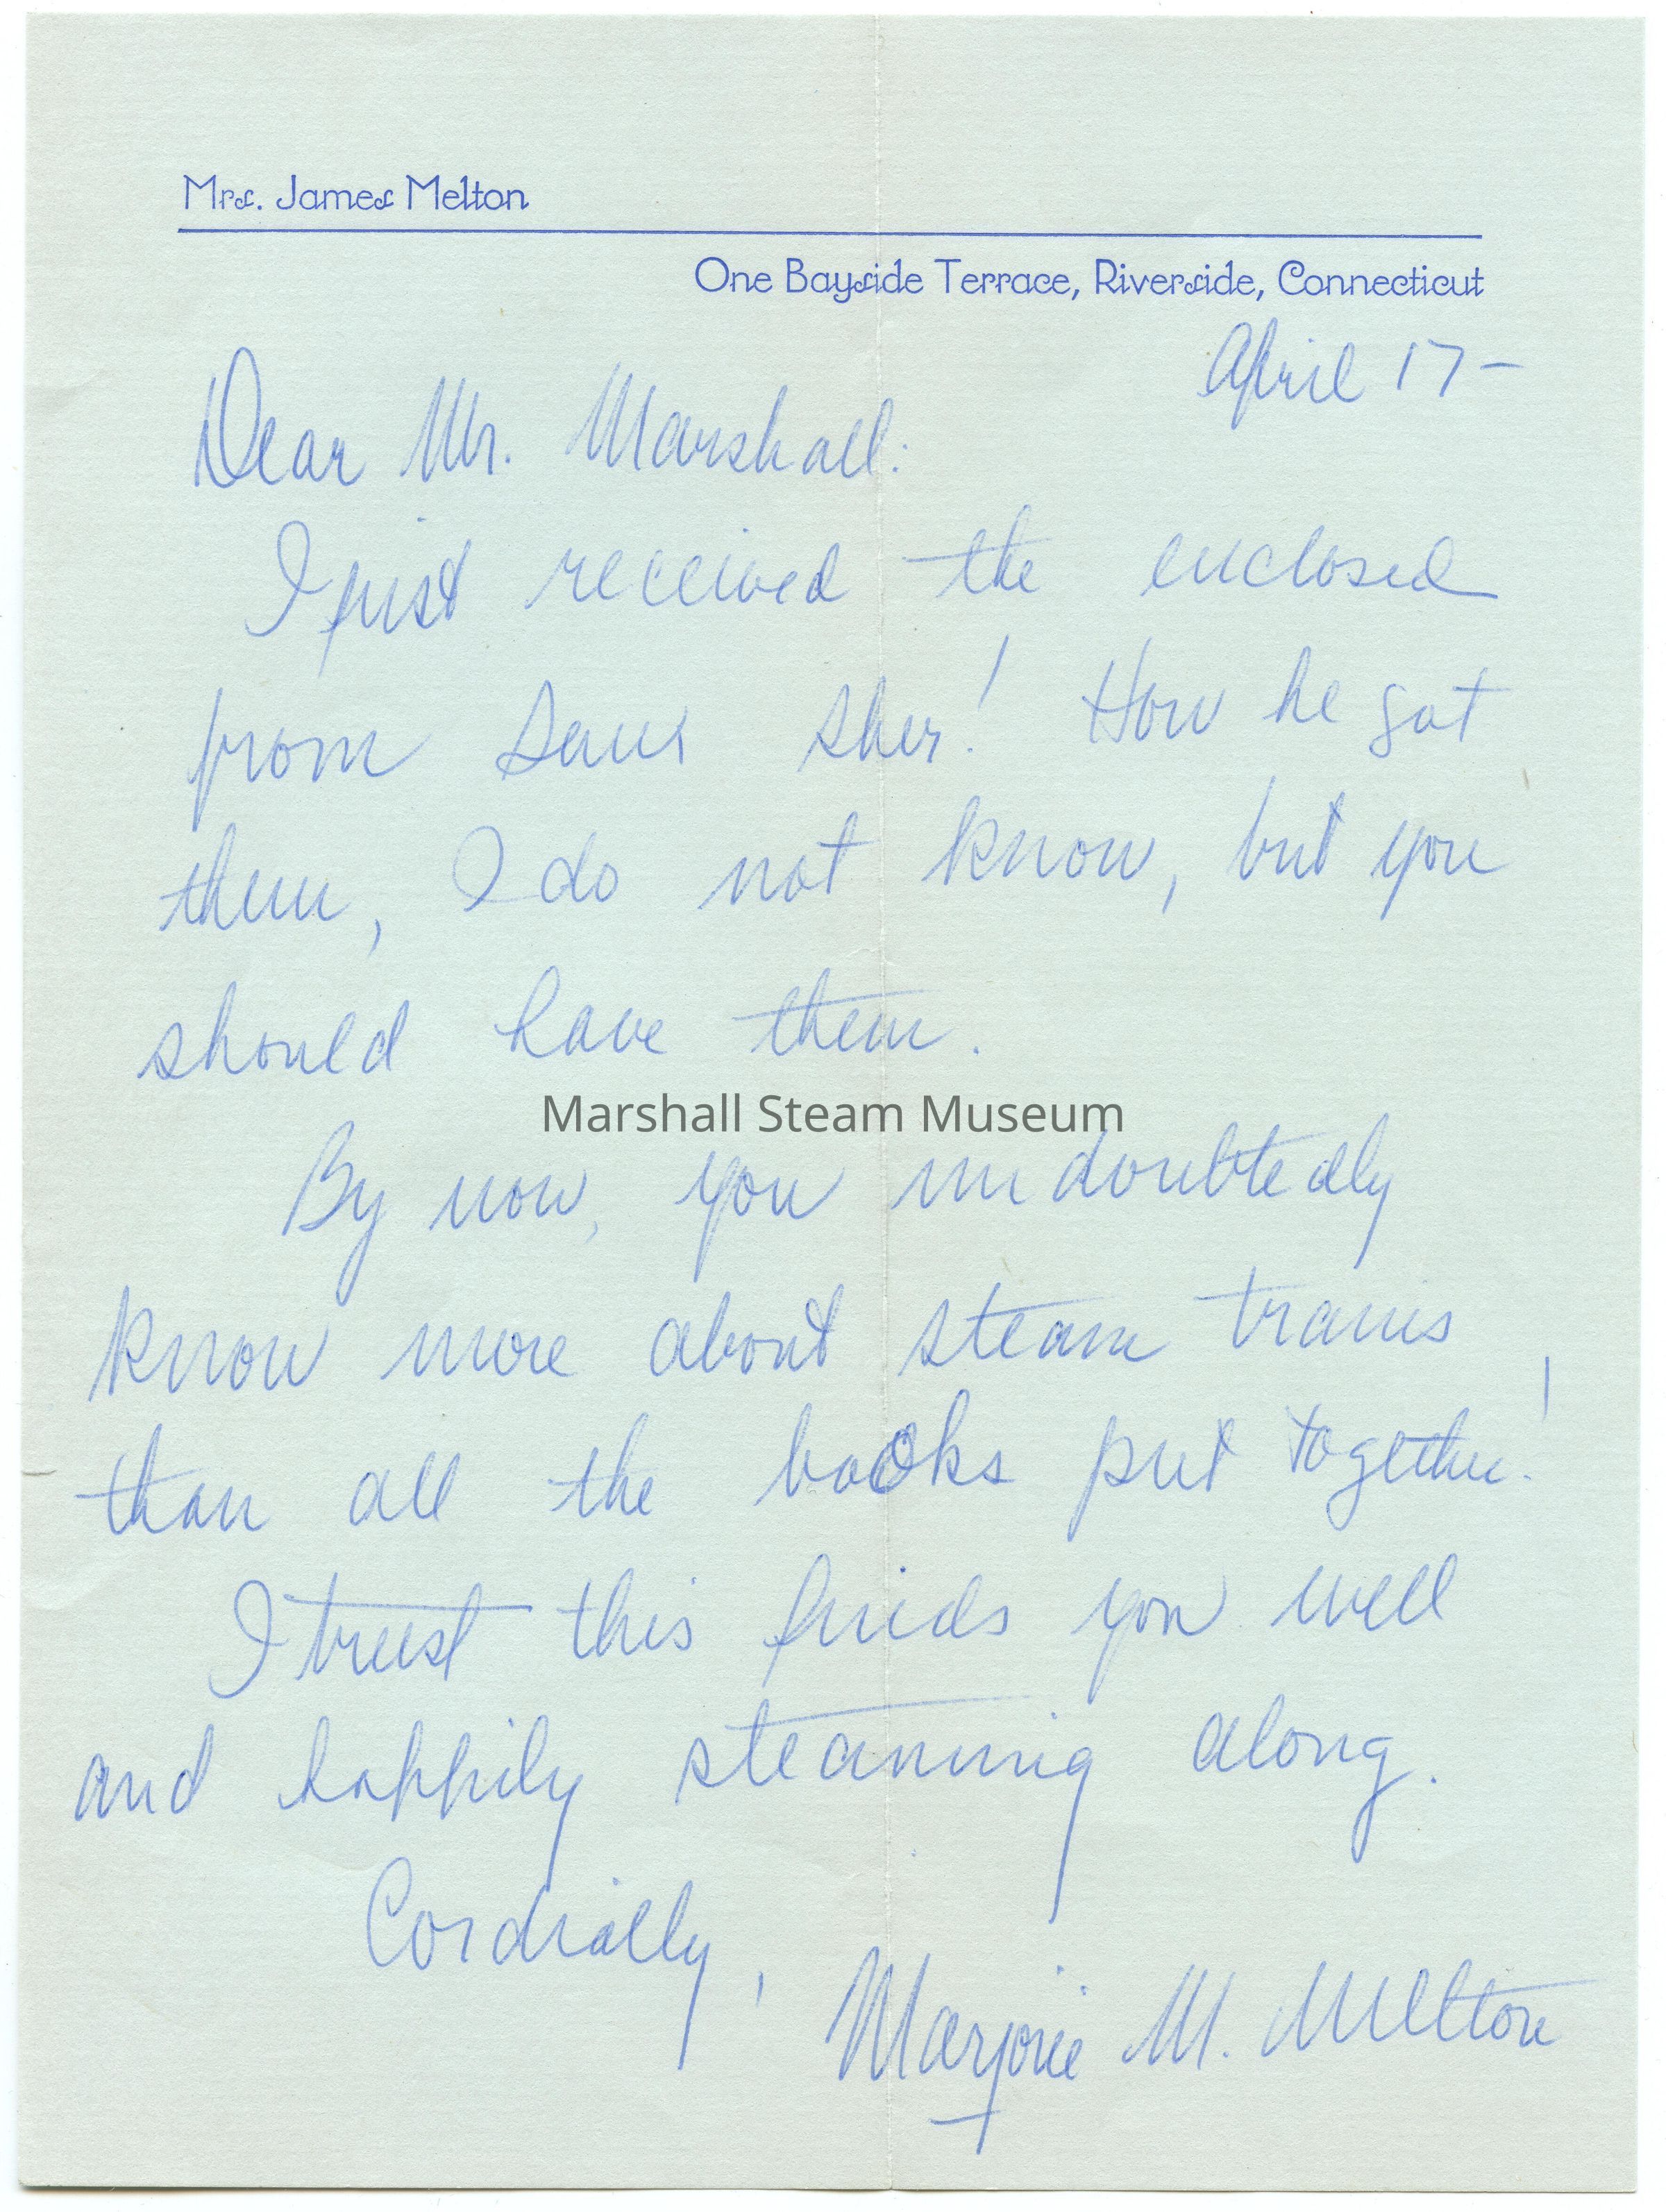 Mrs. James Melton
One Bayside Terrace, Riverside, Connecticut
April 17-
Dear Mr. Marshall:
I just received the enclosed
from Sam Sher! How he got
them, I do not know, but you
should have them.
Marshall Steam Museum
By now, you undoubtedly
know more about steam trains
than all the books put together!
I trust this finds you well
and happily steaming along.
Cordially,
Marjorie M. Melton